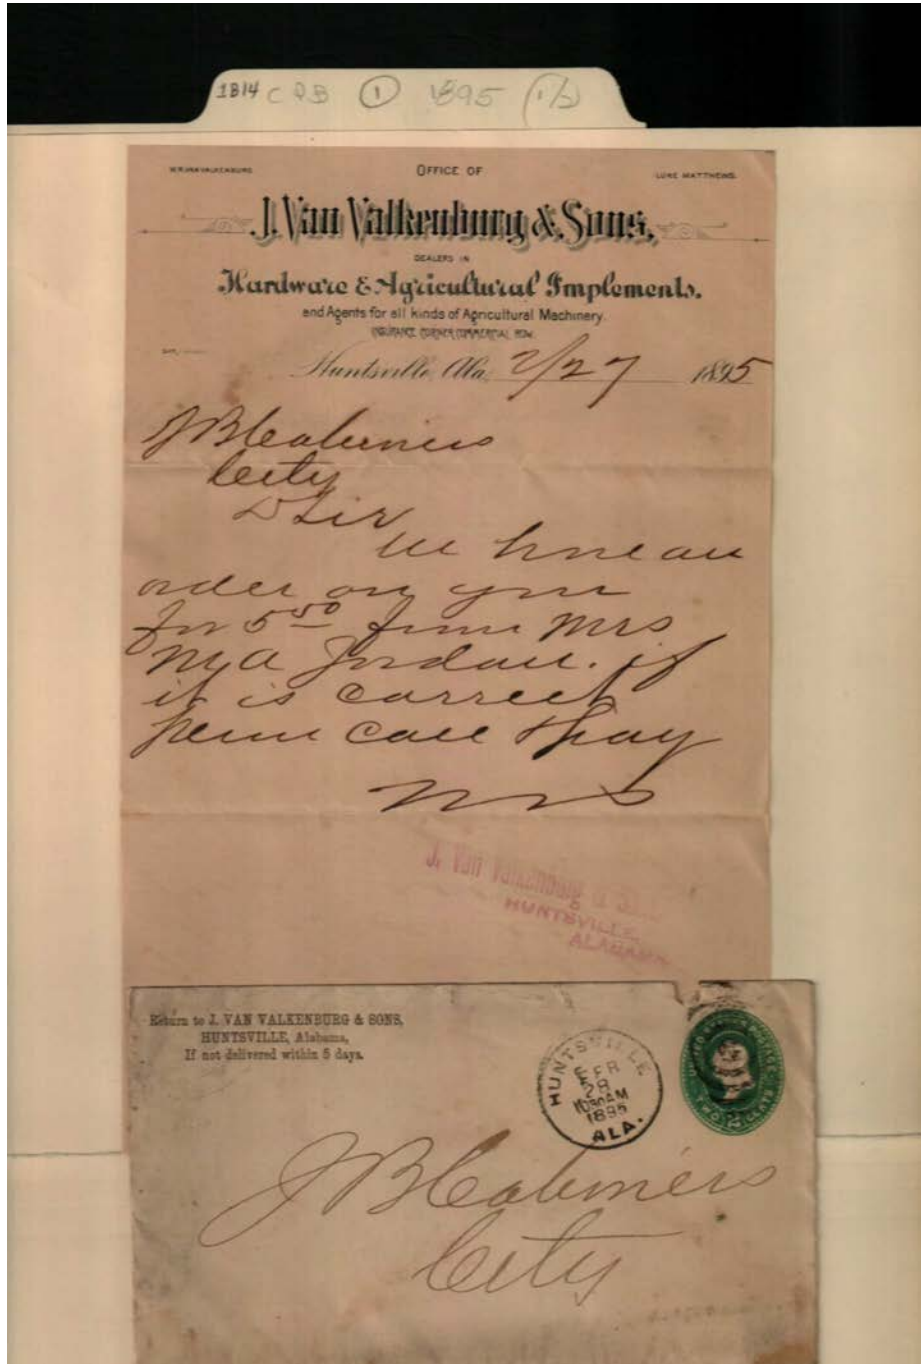 1B14 C P B 1 1895 (1/2)
W.R. VAN VALKENBURG. OFFICE OF LUKE MATTHEWS.
J. Van Valkenburg & Sons,
DEALERS IN
Hardware & Agricultural Implements.
and Agents for all kinds of Agricultural Machinery.
INSURANCE CORNER COMMERCIAL ROW.
Huntsville, Ala, 2/27 1895
J B Cabiness
City
D Sir
We have an
order on you
for 5 50 from Mrs
M A Jordan. if
it is correct
call & pay
J. Van Valkenburg & Sons
HUNTSVILLE
ALABAMA
Return to J. VAN VALKENBURG & SONS,
HUNTSVILLE, Alabama,
If not delivered within 5 days.
HUNTSVILLE
FEB
28
1030AM
1895
ALA.
UNITED STATES POSTAGE
TWO 2 CENTS
J B Cabiness
City